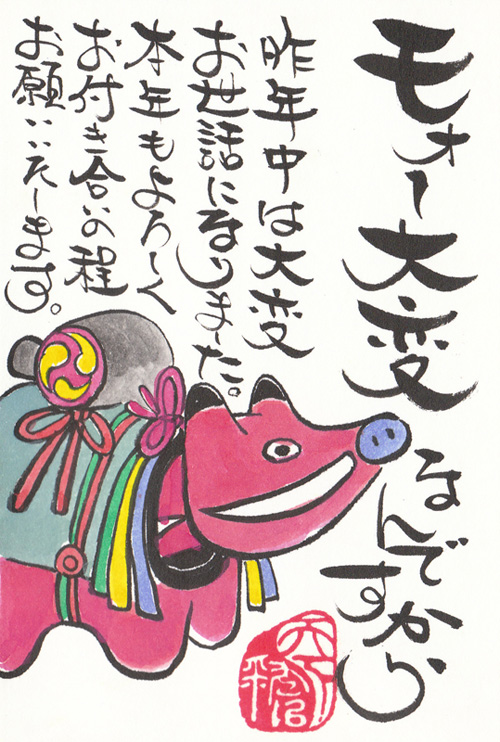 モォー大変なんですから
昨年中は大変
お世話になりました。
本年もよろしく
お付き合いの程
お願いいたします。